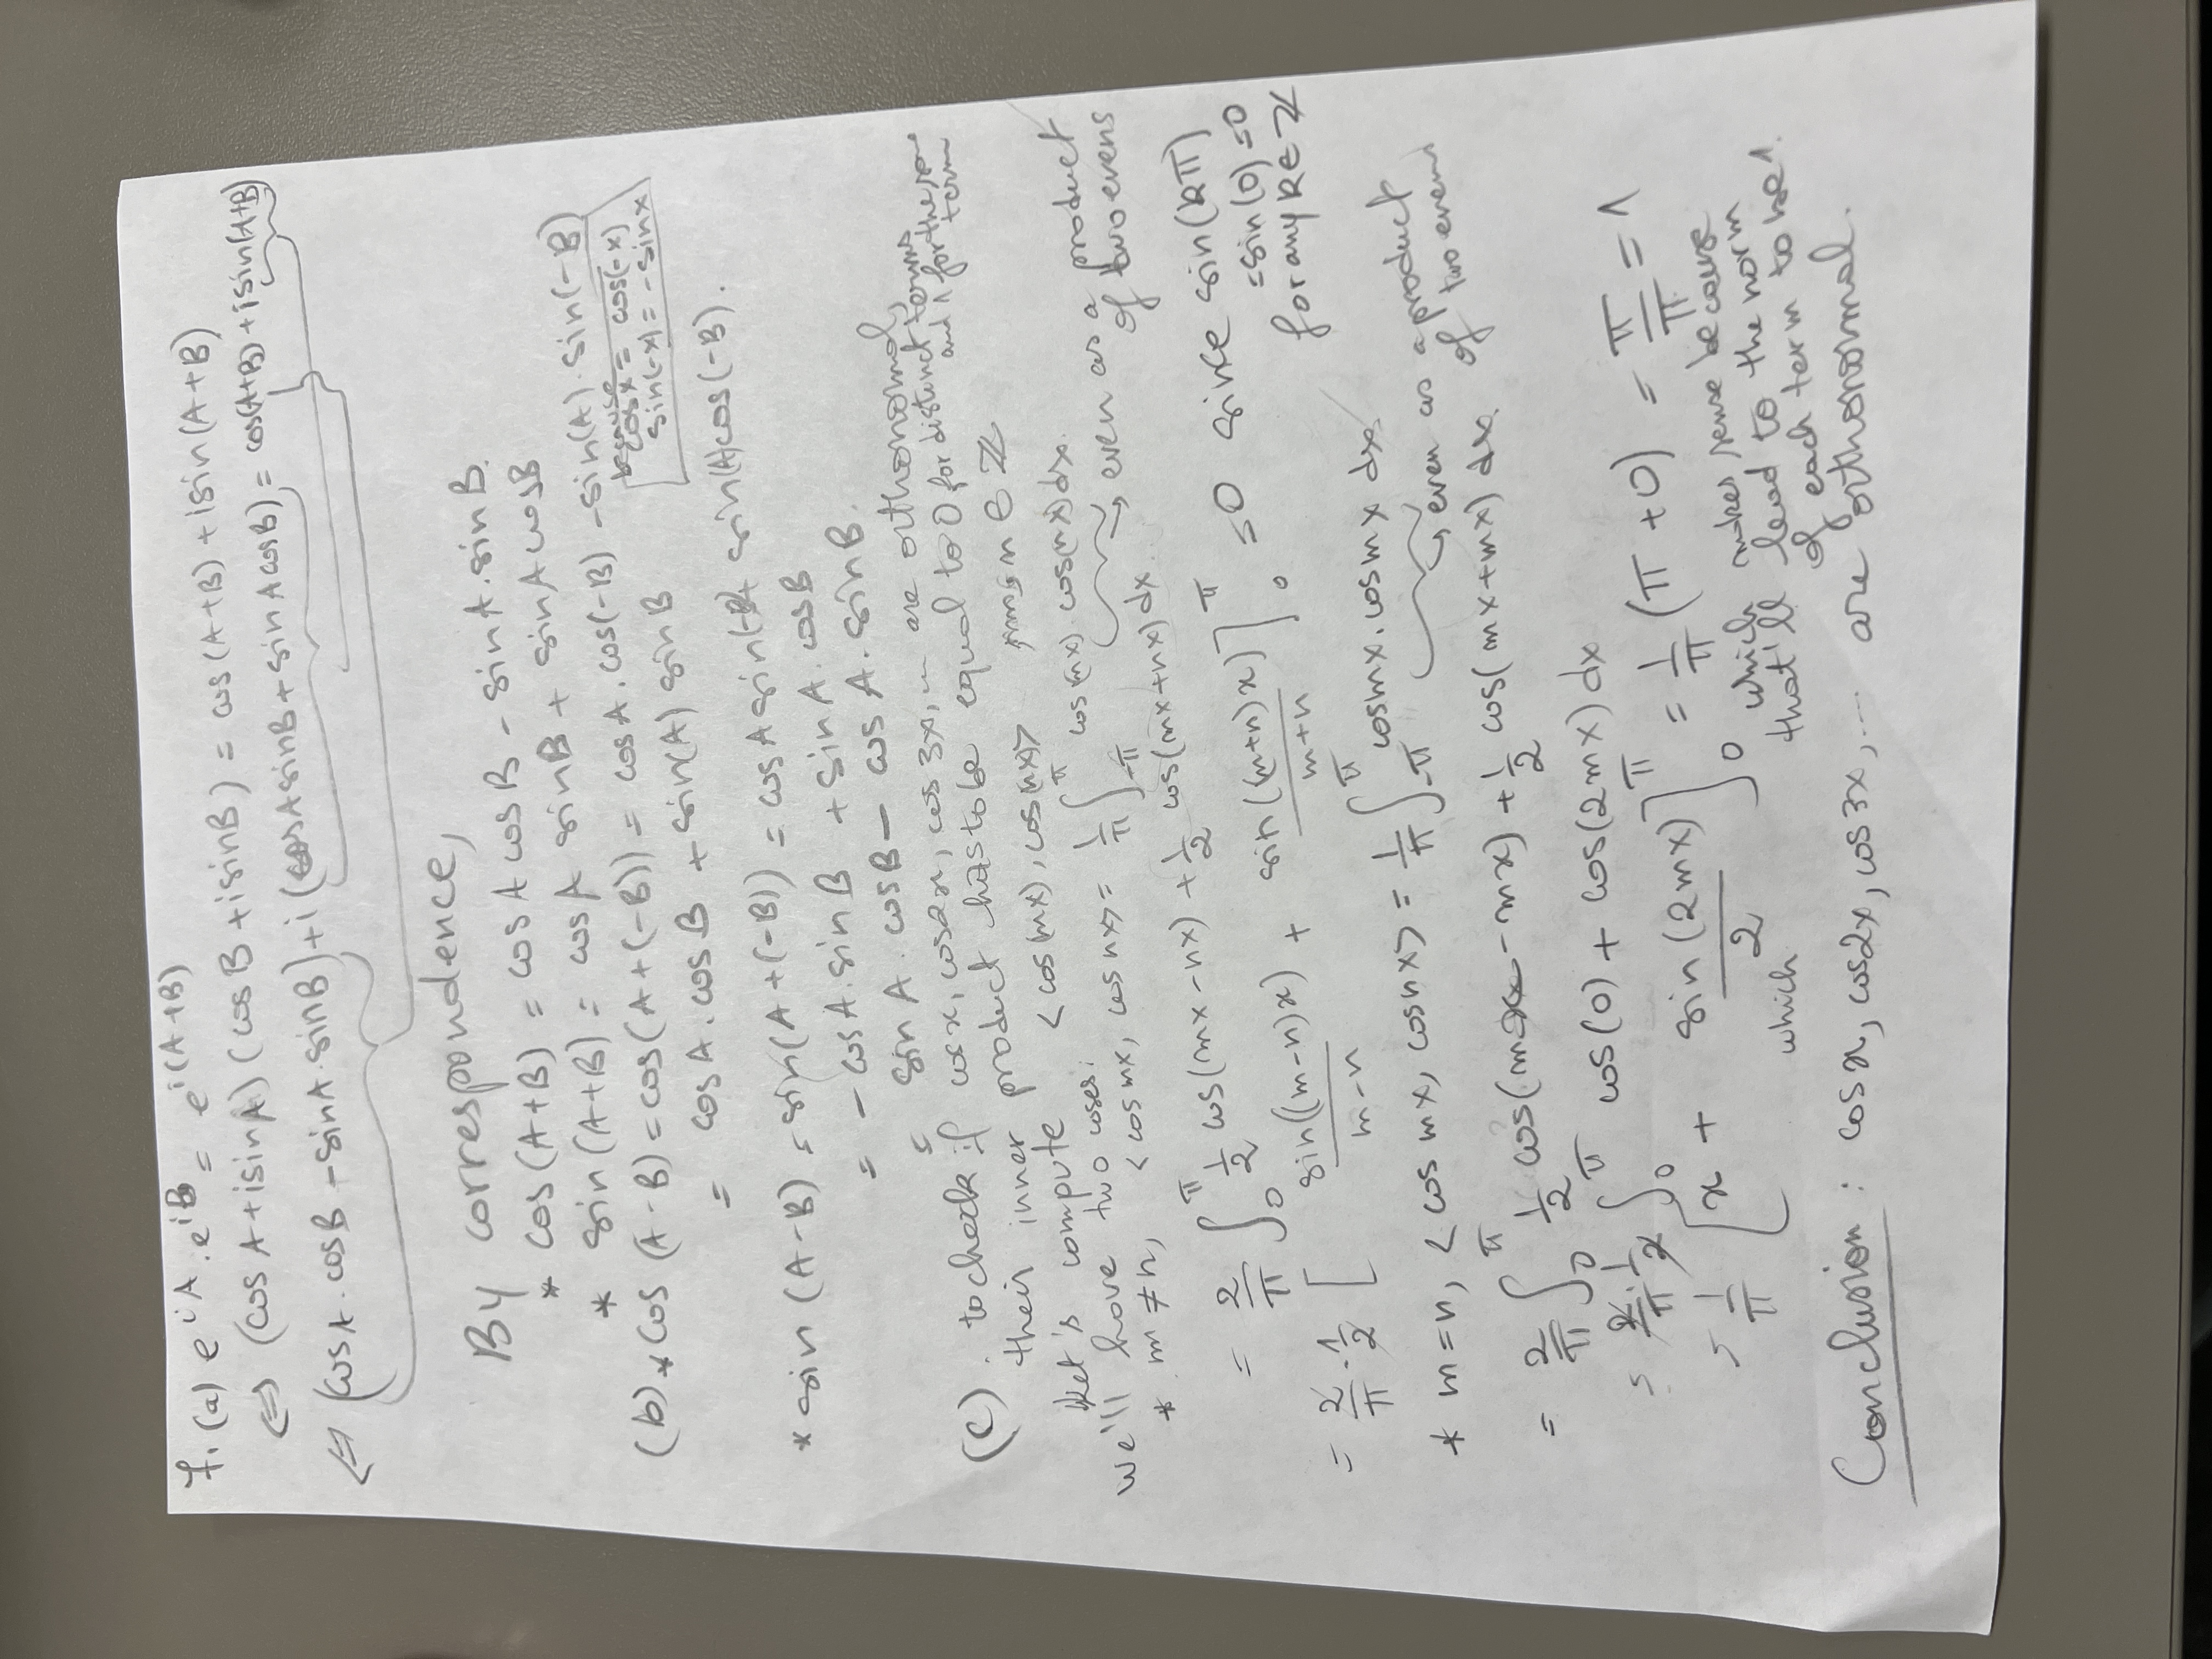 7. (a) e^{iA} . e^{iB} = e^{i(A+B)}
⇔ (cos A + isinA) (cos B + isinB) = cos (A+B) + isin(A+B)
⇔ (cosA . cosB - sinA. sinB) + i (cosAsinB + sinAcosB) = cos(A+B) + isin(A+B)
By correspondence,
* cos (A+B) = cosA cosB - sinA. sinB.
* sin (A+B) = cosA sinB + sinAcosB
(b) * cos (A-B) = cos(A+(-B)) = cosA. cos(-B) - sin(A). sin(-B)
= cosA. cosB + sin(A) sinB
because
cosx = cos(-x)
sin(-x) = -sinx
* sin (A-B) = sin(A+(-B)) = cosAsin(-B)+ sin(A)cos(-B).
= - cosA. sinB + sinA. cosB
= sinA. cosB - cosA. sinB.
(c). to check if cosx, cos2x, cos3x, ... are orthonormal,
their inner product has to be equal to 0 for distinct terms
and 1 for the same
term
Let's compute <cos(mx), cos(nx)> m, n ∈ ℤ
We'll have two cases:
* m ≠ n, <cosmx, cosnx> = 1/π ∫_{-π}^{π} cos(mx) cos(nx)dx.
→ even as a product
of two evens
= 2/π ∫_0^π 1/2 cos(mx-nx) + 1/2 cos(mx+nx)dx.
= 2/π . 1/2 [ sin((m-n)x)/(m-n) + sin((m+n)x)/(m+n) ]_0^π = 0 since sin(kπ)
= sin(0) = 0
for any k∈ℤ
* m=n, <cosmx, cosnx> = 1/π ∫_{-π}^{π} cosmx. cosmx dx
→ even as a product
of two evens
= 2/π ∫_0^π 1/2 cos(mx - mx) + 1/2 cos(mx+mx) dx.
= 2/π . 1/2 ∫_0^π cos(0) + cos(2mx) dx
= 1/π [ x + sin(2mx)/2 ]_0^π = 1/π (π + 0) = π/π = 1
which
which makes sense because
that'll lead to the norm
of each term to be 1.
Conclusion : cosx, cos2x, cos3x, ... are orthonormal.